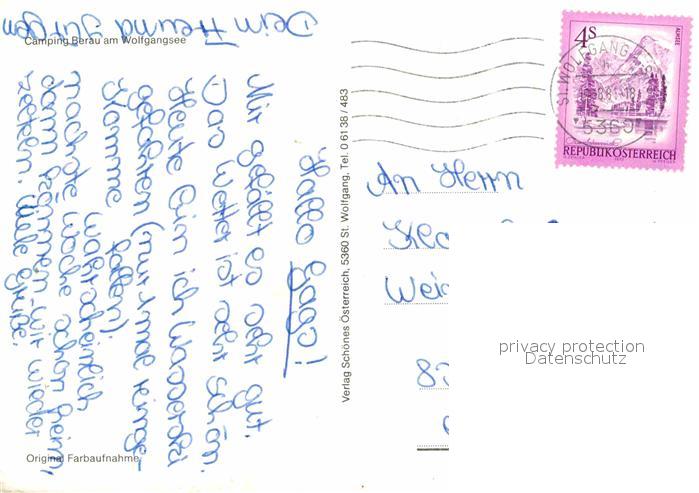 Camping Berau am Wolfgangsee
Hallo Gago!
Mir gefällt es sehr gut.
Das Wetter ist sehr schön.
Heute bin ich Wasserski
gefahren (nur 1 mal reinge-
fallen).
Komme wahrscheinlich
nächste Woche schon heim,
dann können wir wieder
zelten. Viele Grüße.
Dein Freund Jürgen
Original Farbaufnahme
Verlag Schönes Österreich, 5360 St. Wolfgang, Tel. 0 61 38 / 483
4 S
ALMSEE
REPUBLIK ÖSTERREICH
ST. WOLFGANG
5360
An Herrn
privacy protection
Datenschutz